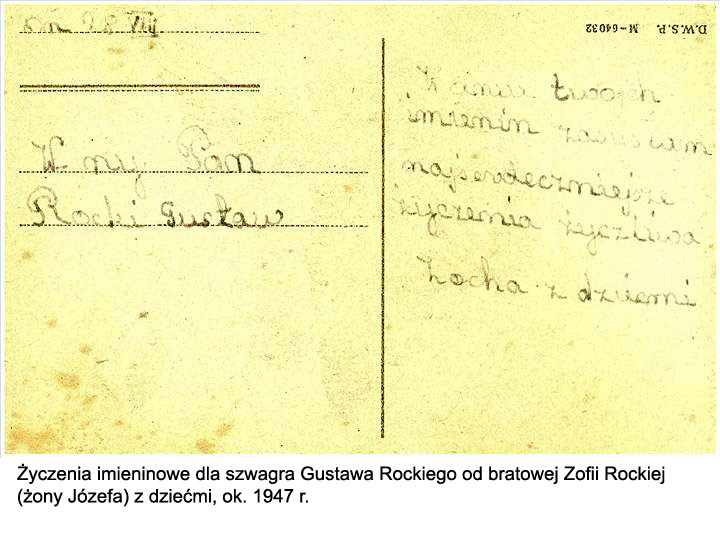 VIII
D.W.S.P. M-64032
W Pan
Rocki Gustaw
W twojch
imienin
najserdeczniejsze
życzenia życzliwa
Zocha z dziemi
Życzenia imieninowe dla szwagra Gustawa Rockiego od bratowej Zofii Rockiej
(żony Józefa) z dziećmi, ok. 1947 r.